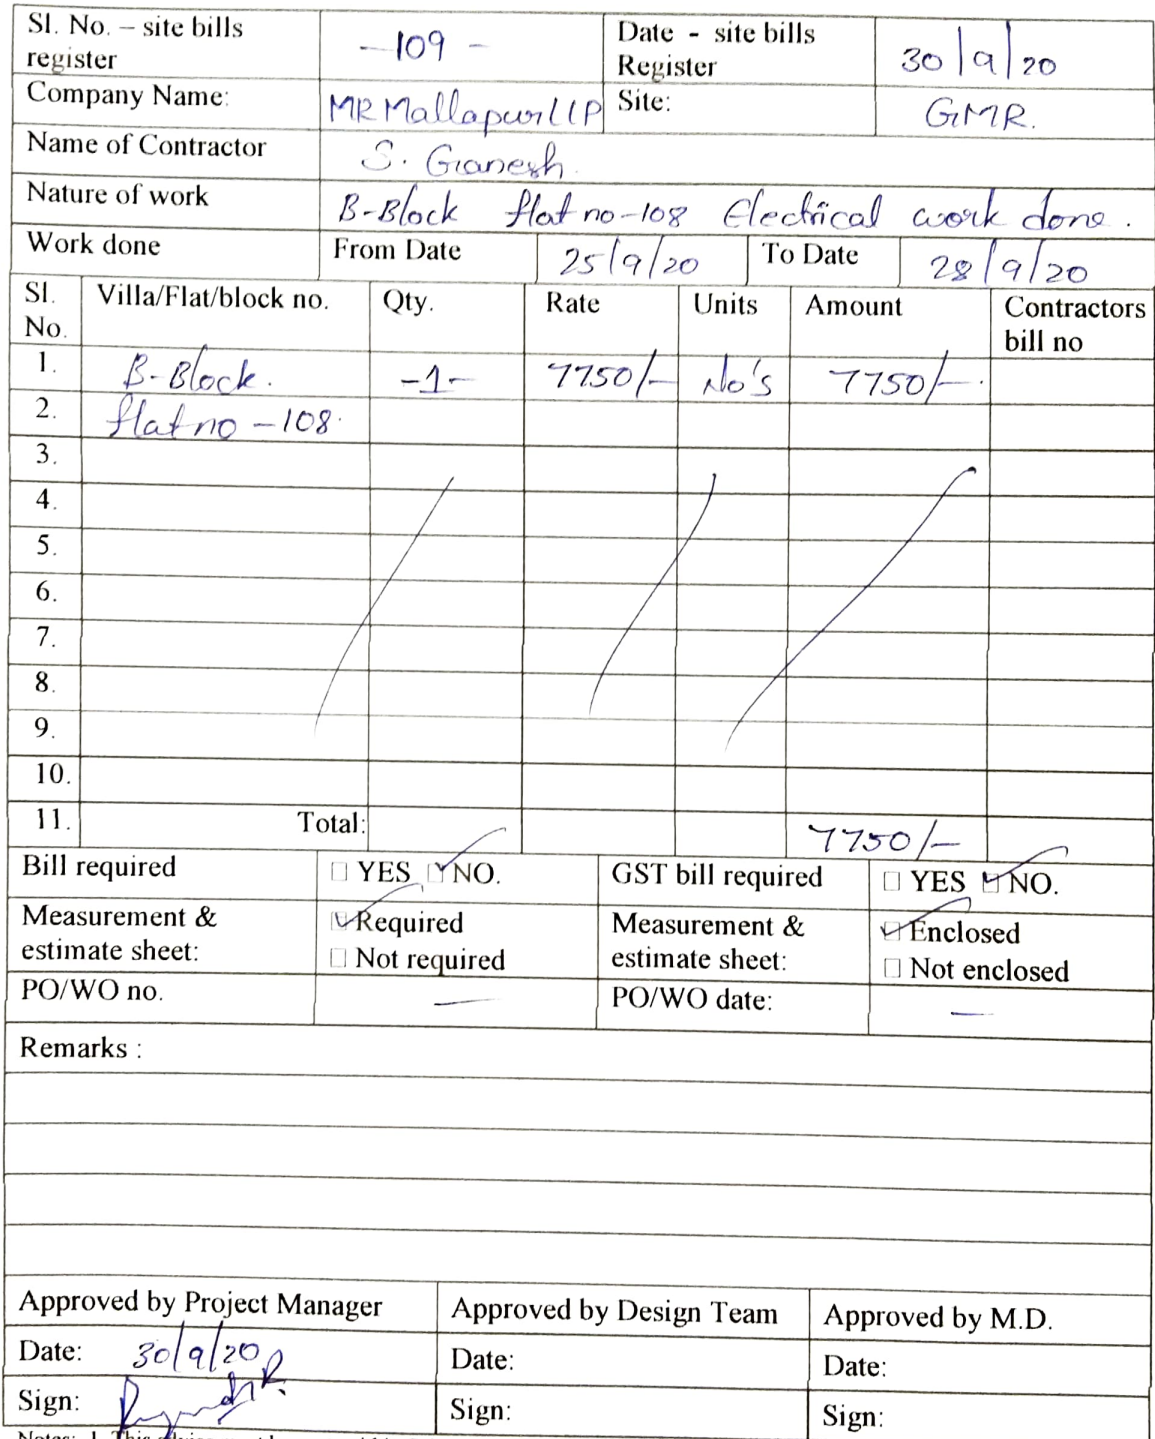 Sl. No. – site bills register -109- Date - site bills Register 30/9/20
Company Name: MR Mallapur LLP Site: GMR.
Name of Contractor S. Ganesh.
Nature of work B-Block flat no-108 Electrical work done.
Work done From Date 25/9/20 To Date 28/9/20
Sl. No. Villa/Flat/block no. Qty. Rate Units Amount Contractors bill no
1. B-Block. -1- 7750/- No's 7750/-.
2. flat no -108.
3.
4.
5.
6.
7.
8.
9.
10.
11. Total: 7750/-
Bill required □ YES ☑ NO. GST bill required □ YES ☑ NO.
Measurement & estimate sheet: ☑ Required □ Not required Measurement & estimate sheet: ☑ Enclosed □ Not enclosed
PO/WO no. — PO/WO date: —
Remarks :
Approved by Project Manager Approved by Design Team Approved by M.D.
Date: 30/9/20 Date: Date:
Sign: Sign: Sign:
Notes: 1. This